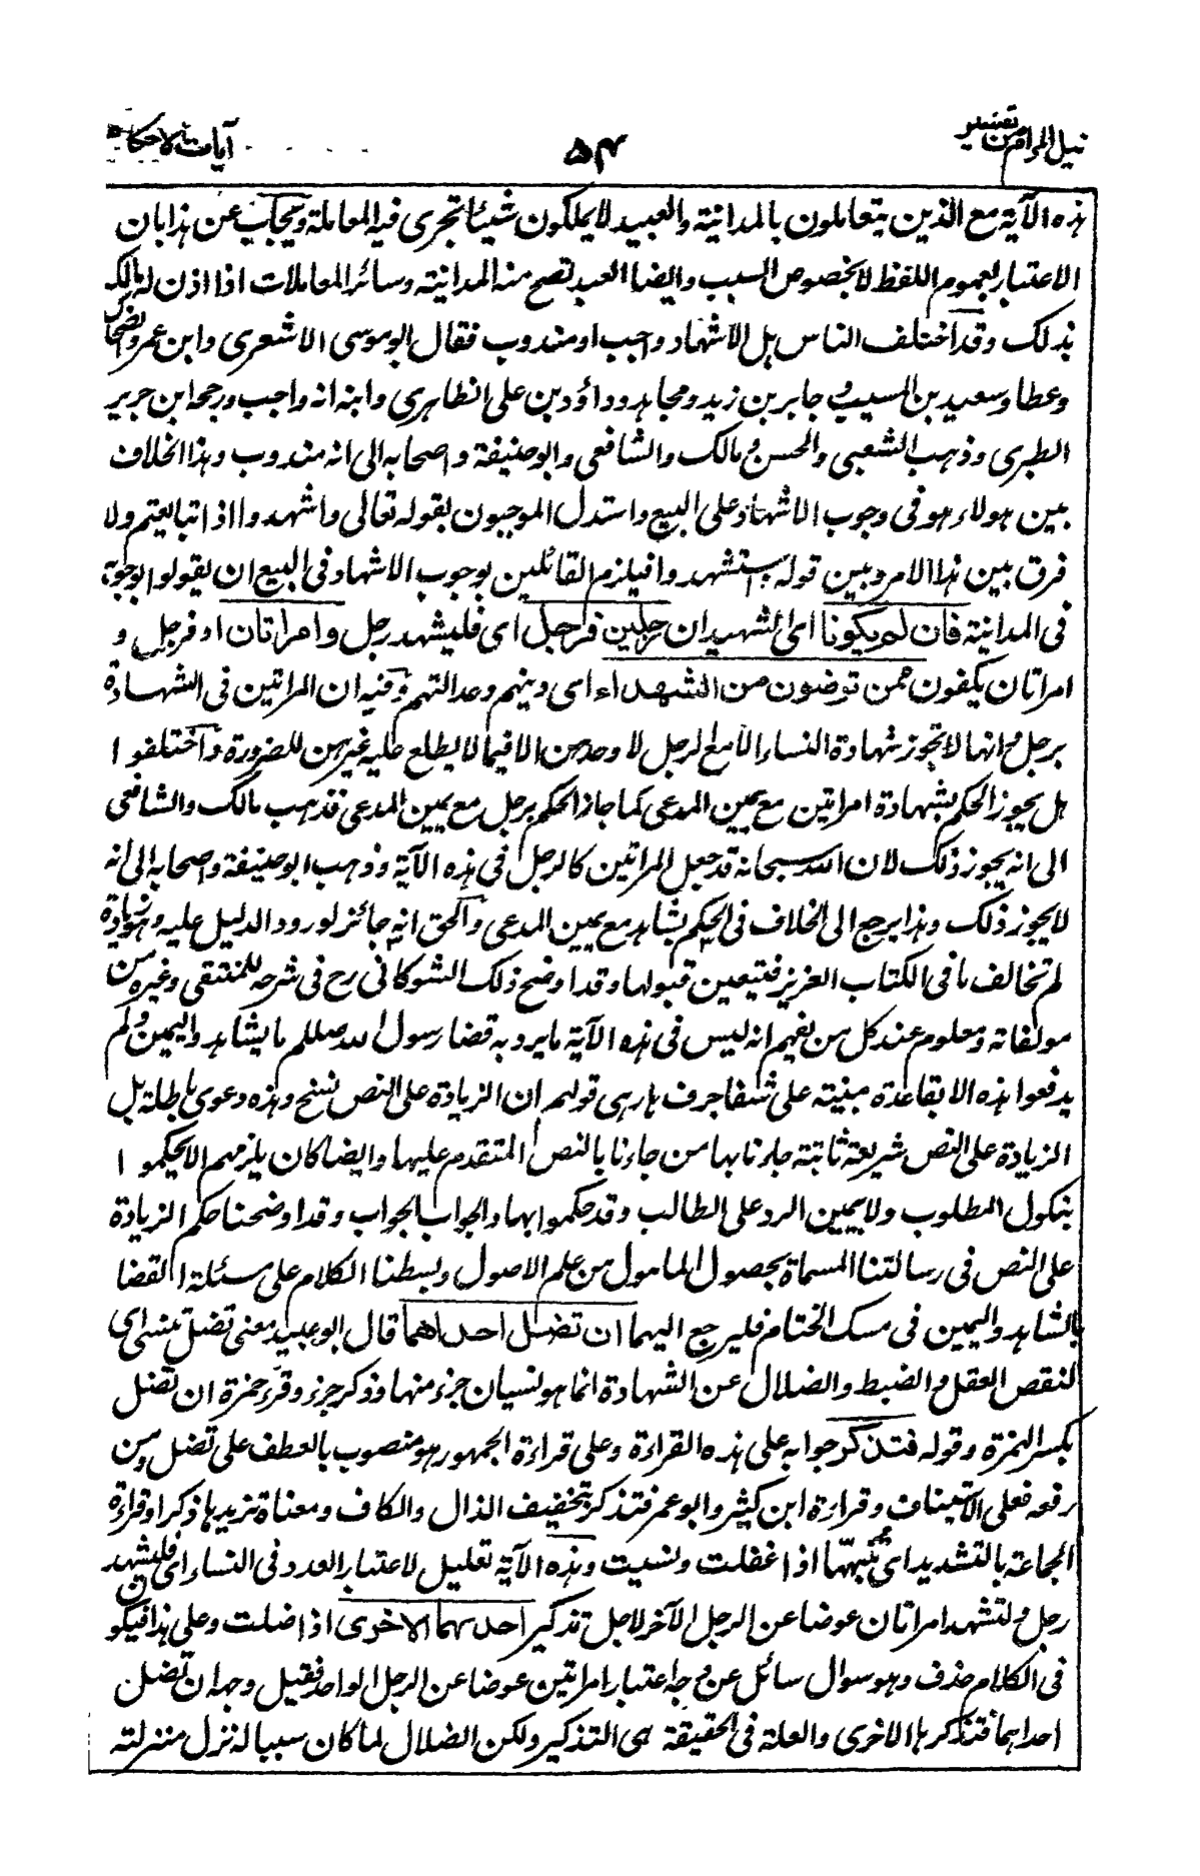 نيل المرام من تفسير
۵۴
آيات الاحكام
هذه الآية مع الذين يتعاملون بالمداينة والعبيد لا يملكون شيئا تجرى فيه المعاملة ويجاب عن هذا بان
الاعتبار بعموم اللفظ لا بخصوص السبب وايضا العبد تصح منه المداينة وسائر المعاملات اذا اذن له مالكه
بذلك وقد اختلف الناس هل الاشهاد واجب او مندوب فقال ابو موسى الاشعرى وابن عمر والضحاك
وعطا وسعيد بن المسيب و جابر بن زيد ومجاهد وداؤد بن على الظاهري وابنه انه واجب ورجحه ابن جرير
الطبرى وذهب الشعبى والحسن و مالك والشافعى وابو حنيفة واصحابه الى انه مندوب وهذا الخلاف
بين هولاء هو فى وجوب الاشهاد على البيع واستدل الموجبون بقوله تعالى واشهدوا اذا تبايعتم ولا
فرق بين هذا الامر وبين قوله استشهدوا فيلزم القائلين بوجوب الاشهاد فى البيع ان يقولوا بوجوبه
فى المداينة فان لم يكونا اى الشهيدان رجلين فرجل اى فليشهد رجل وامراتان او فرجل و
امراتان يكفون ممن ترضون من الشهداء اى دينهم وعدالتهم وفيه ان المراتين فى الشهادة
برجل و انها لا تجوز شهادة النساء الا مع الرجل لا وحدهن الا فيما لا يطلع عليه غيرهن للضرورة واختلفوا
هل يجوز الحكم بشهادة امراتين مع يمين المدعى كما جاز الحكم برجل مع يمين المدعى فذهب مالك والشافعى
الى انه يجوز ذلك لان الله سبحانه قد جعل المراتين كالرجل فى هذه الآية وذهب ابو حنيفة واصحابه الى انه
لا يجوز ذلك وهذا يرجع الى الخلاف فى الحكم بشاهد مع يمين المدعى والحق انه جائز لورود الدليل عليه وهو زيادة
لم تخالف ما فى الكتاب العزيز فتيعين قبولها وقد اوضح ذلك الشوكانى رح فى شرحه للمنتقى وغيره من
مولفاته ومعلوم عند كل من يفهم انه ليس فى هذه الآية ما يرد به قضا رسول الله صللم بالشاهد واليمين ولم
يدفعوا هذه الا بقاعدة مبنية على شفا جرف هار هى قولهم ان الزيادة على النص نسخ وهذه دعوى باطلة بل
الزيادة على النص شريعة ثابتة جاءنا بها من جاءنا بالنص المتقدم عليها وايضا كان يلزمهم الا يحكموا
بنكول المطلوب ولا بيمين الرد على الطالب وقد حكموا بهما والجواب الجواب وقد اوضحنا حكم الزيادة
على النص فى رسالتنا المسماة بحصول المامول من علم الاصول وبسطنا الكلام على مسئلة القضا
بالشاهد واليمين فى مسك الختام فليرجع اليهما ان تضل احداهما قال ابو عبيد معنى تضل تنسى اى
لنقص العقل و الضبط والضلال عن الشهادة انما هو نسيان جزء منها وذكر جزء وقرء حمزة ان تضل
بكسر الهمزة وقوله فتذكر جوابه على هذه القراءة وعلى قراءة الجمهور هو منصوب بالعطف على تضل ومن
رفعه فعلى الاستيناف وقراءة ابن كثير وابو عمر فتذكر بتخفيف الذال والكاف ومعناه تزيدها ذكرا وقراءة
الجماعة بالتشديد اى تنبهها اذا غفلت ونسيت وهذه الآية تعليل لاعتبار العدد فى النساء اى فليشهد
رجل و لتشهد امراتان عوضا عن الرجل الآخر لاجل تذكير احدىهما الاخرى اذا ضلت وعلى هذا فيكون
فى الكلام حذف وهو سوال سائل عن وجه اعتبار امراتين عوضا عن الرجل الواحد فقيل وجهه ان تضل
احداهما فتذكرها الاخرى والعلة فى الحقيقة هى التذكير ولكن الضلال لما كان سببا له نزل منزلته